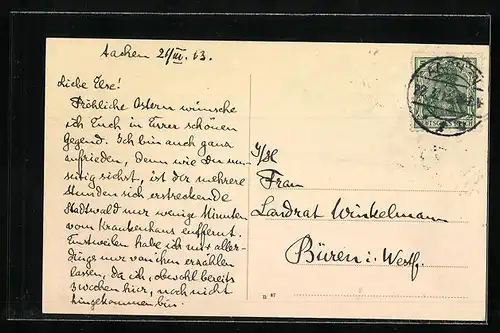 Aachen 21/III. 13.
Liebe Else!
Fröhliche Ostern wünsche
ich Euch in Eurer schönen
Gegend. Ich bin auch ganz
zufrieden, denn wie Du um-
seitig siehst, ist der mehrere
Stunden sich erstreckende
Stadtwald nur wenige Minuten
vom Krankenhaus entfernt.
Einstweilen habe ich mir aller-
dings nur von ihm erzählen
lassen, da ich, obwohl bereits
3 Wochen hier, noch nicht
hingekommen bin.
Frau
Landrat Winkelmann
Büren i. Westf.
AACHEN